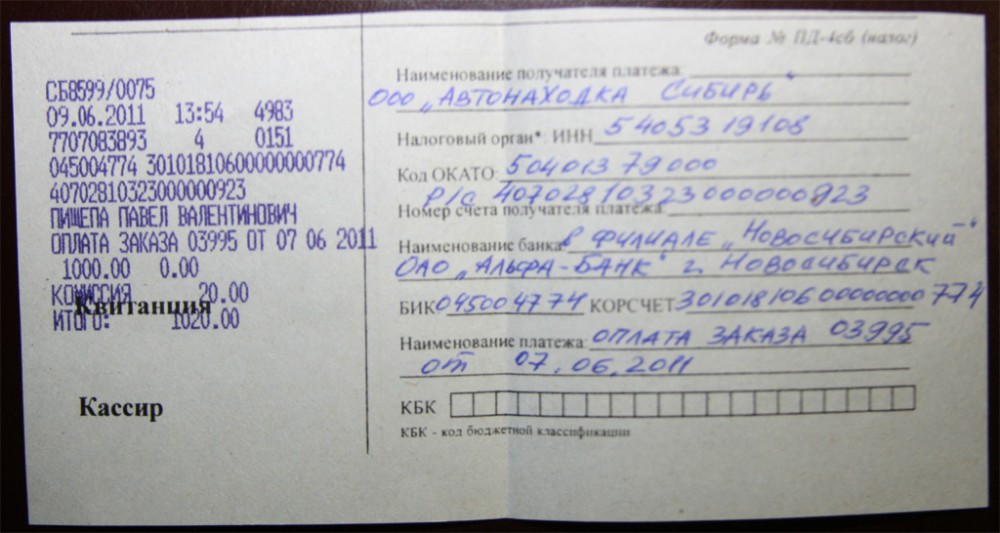 Форма № ПД-4сб (налог)
СБ8599/0075
09.06.2011 13:54 4983
7707083893 4 0151
045004774 30101810600000000774
40702810323000000923
ПИЩЕПА ПАВЕЛ ВАЛЕНТИНОВИЧ
ОПЛАТА ЗАКАЗА 03995 ОТ 07 06 2011
1000.00 0.00
КОМИССИЯ 20.00
Квитанция
ИТОГО: 1020.00
Кассир
Наименование получателя платежа:
ООО „АВТОНАХОДКА СИБИРЬ"
Налоговый орган*: ИНН 5405319108
Код ОКАТО: 50401379000
Р/С 40702810323000000923
Номер счета получателя платежа:
Наименование банка: в ФИЛИАЛЕ „НОВОСИБИРСКИЙ"
ОАО „АЛЬФА-БАНК" г. НОВОСИБИРСК
БИК 045004774 КОРСЧЕТ 30101810600000000774
Наименование платежа: ОПЛАТА ЗАКАЗА 03995
от 07.06.2011
КБК
КБК - код бюджетной классификации